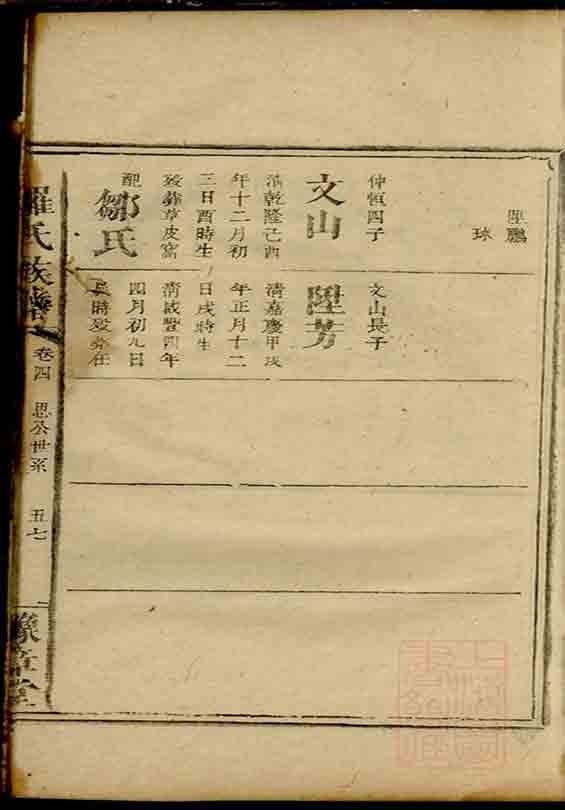 陞鵬
球
仲恒四子
文山
清乾隆己酉
年十二月初
三日酉時生
歿葬草皮窩
配鄒氏
文山長子
陞芳
清嘉慶甲戌
年正月十二
日戌時生
清咸豐四年
四月初九日
吳時歿葬在
羅氏族譜
卷四
思公世系
五七
豫章堂